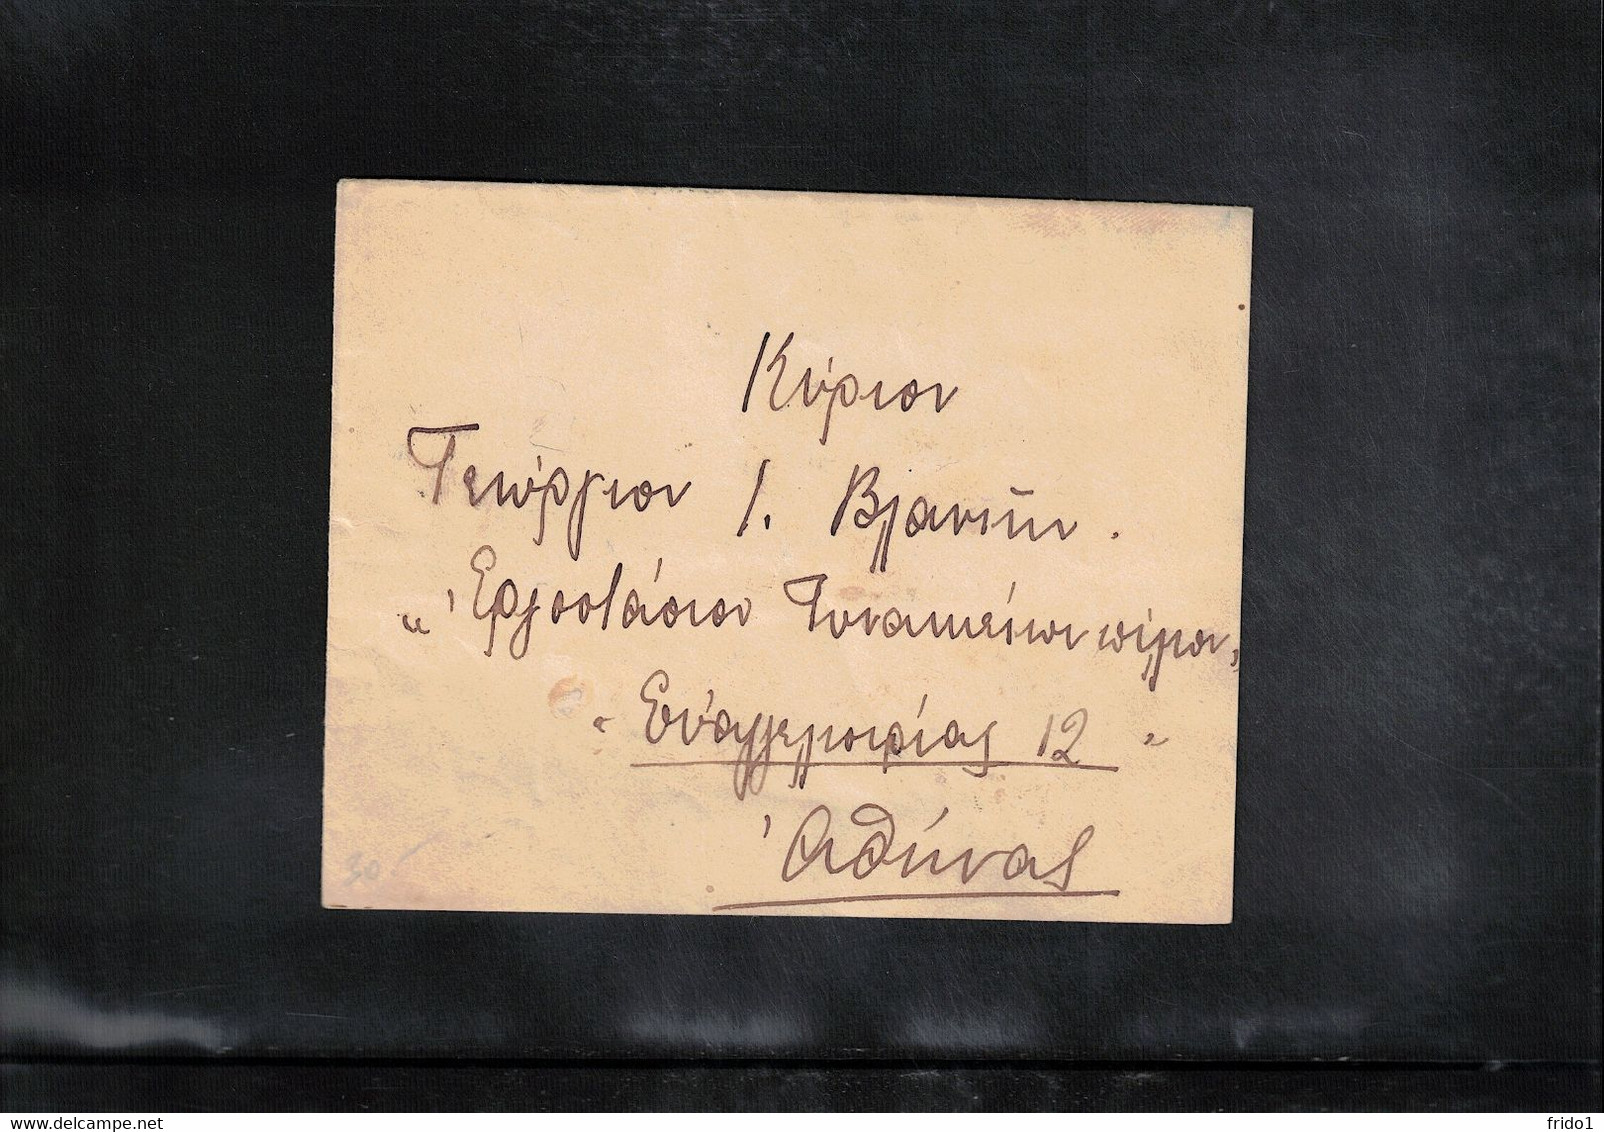 Κύριον
Γεώργιον Ι. Βλανίκην.
" Ἐργοστάσιον Γυναικείων πίλων "
" Εὐαγγελιστρίας 12 "
Ἀθήνας
30
delcampe.net
frido1